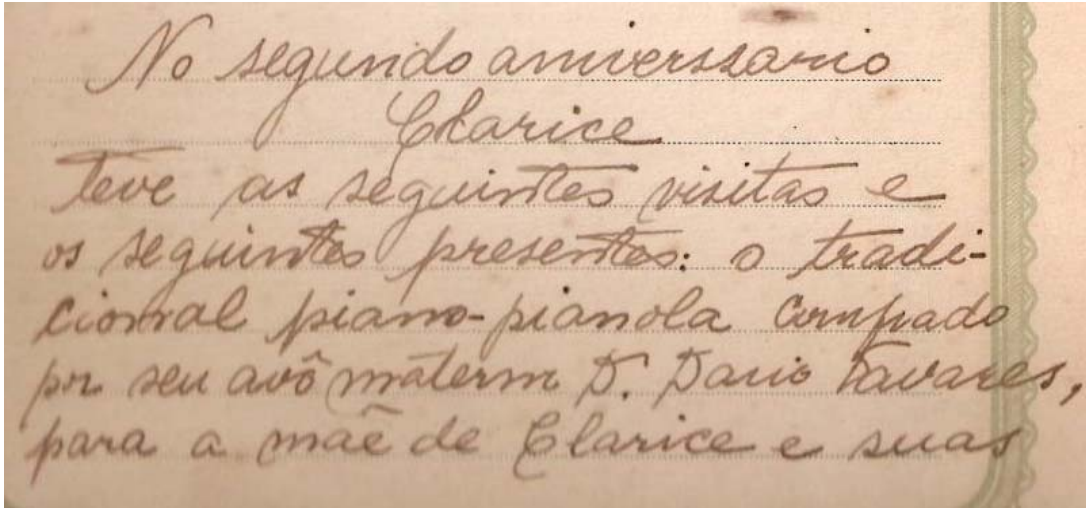 No segundo aniverssario
Clarice
teve as seguintes visitas e
os seguintes presentes: o tradi-
cional piano-pianola comprado
por seu avô materno D. Dario Tavares,
para a mãe de Clarice e suas